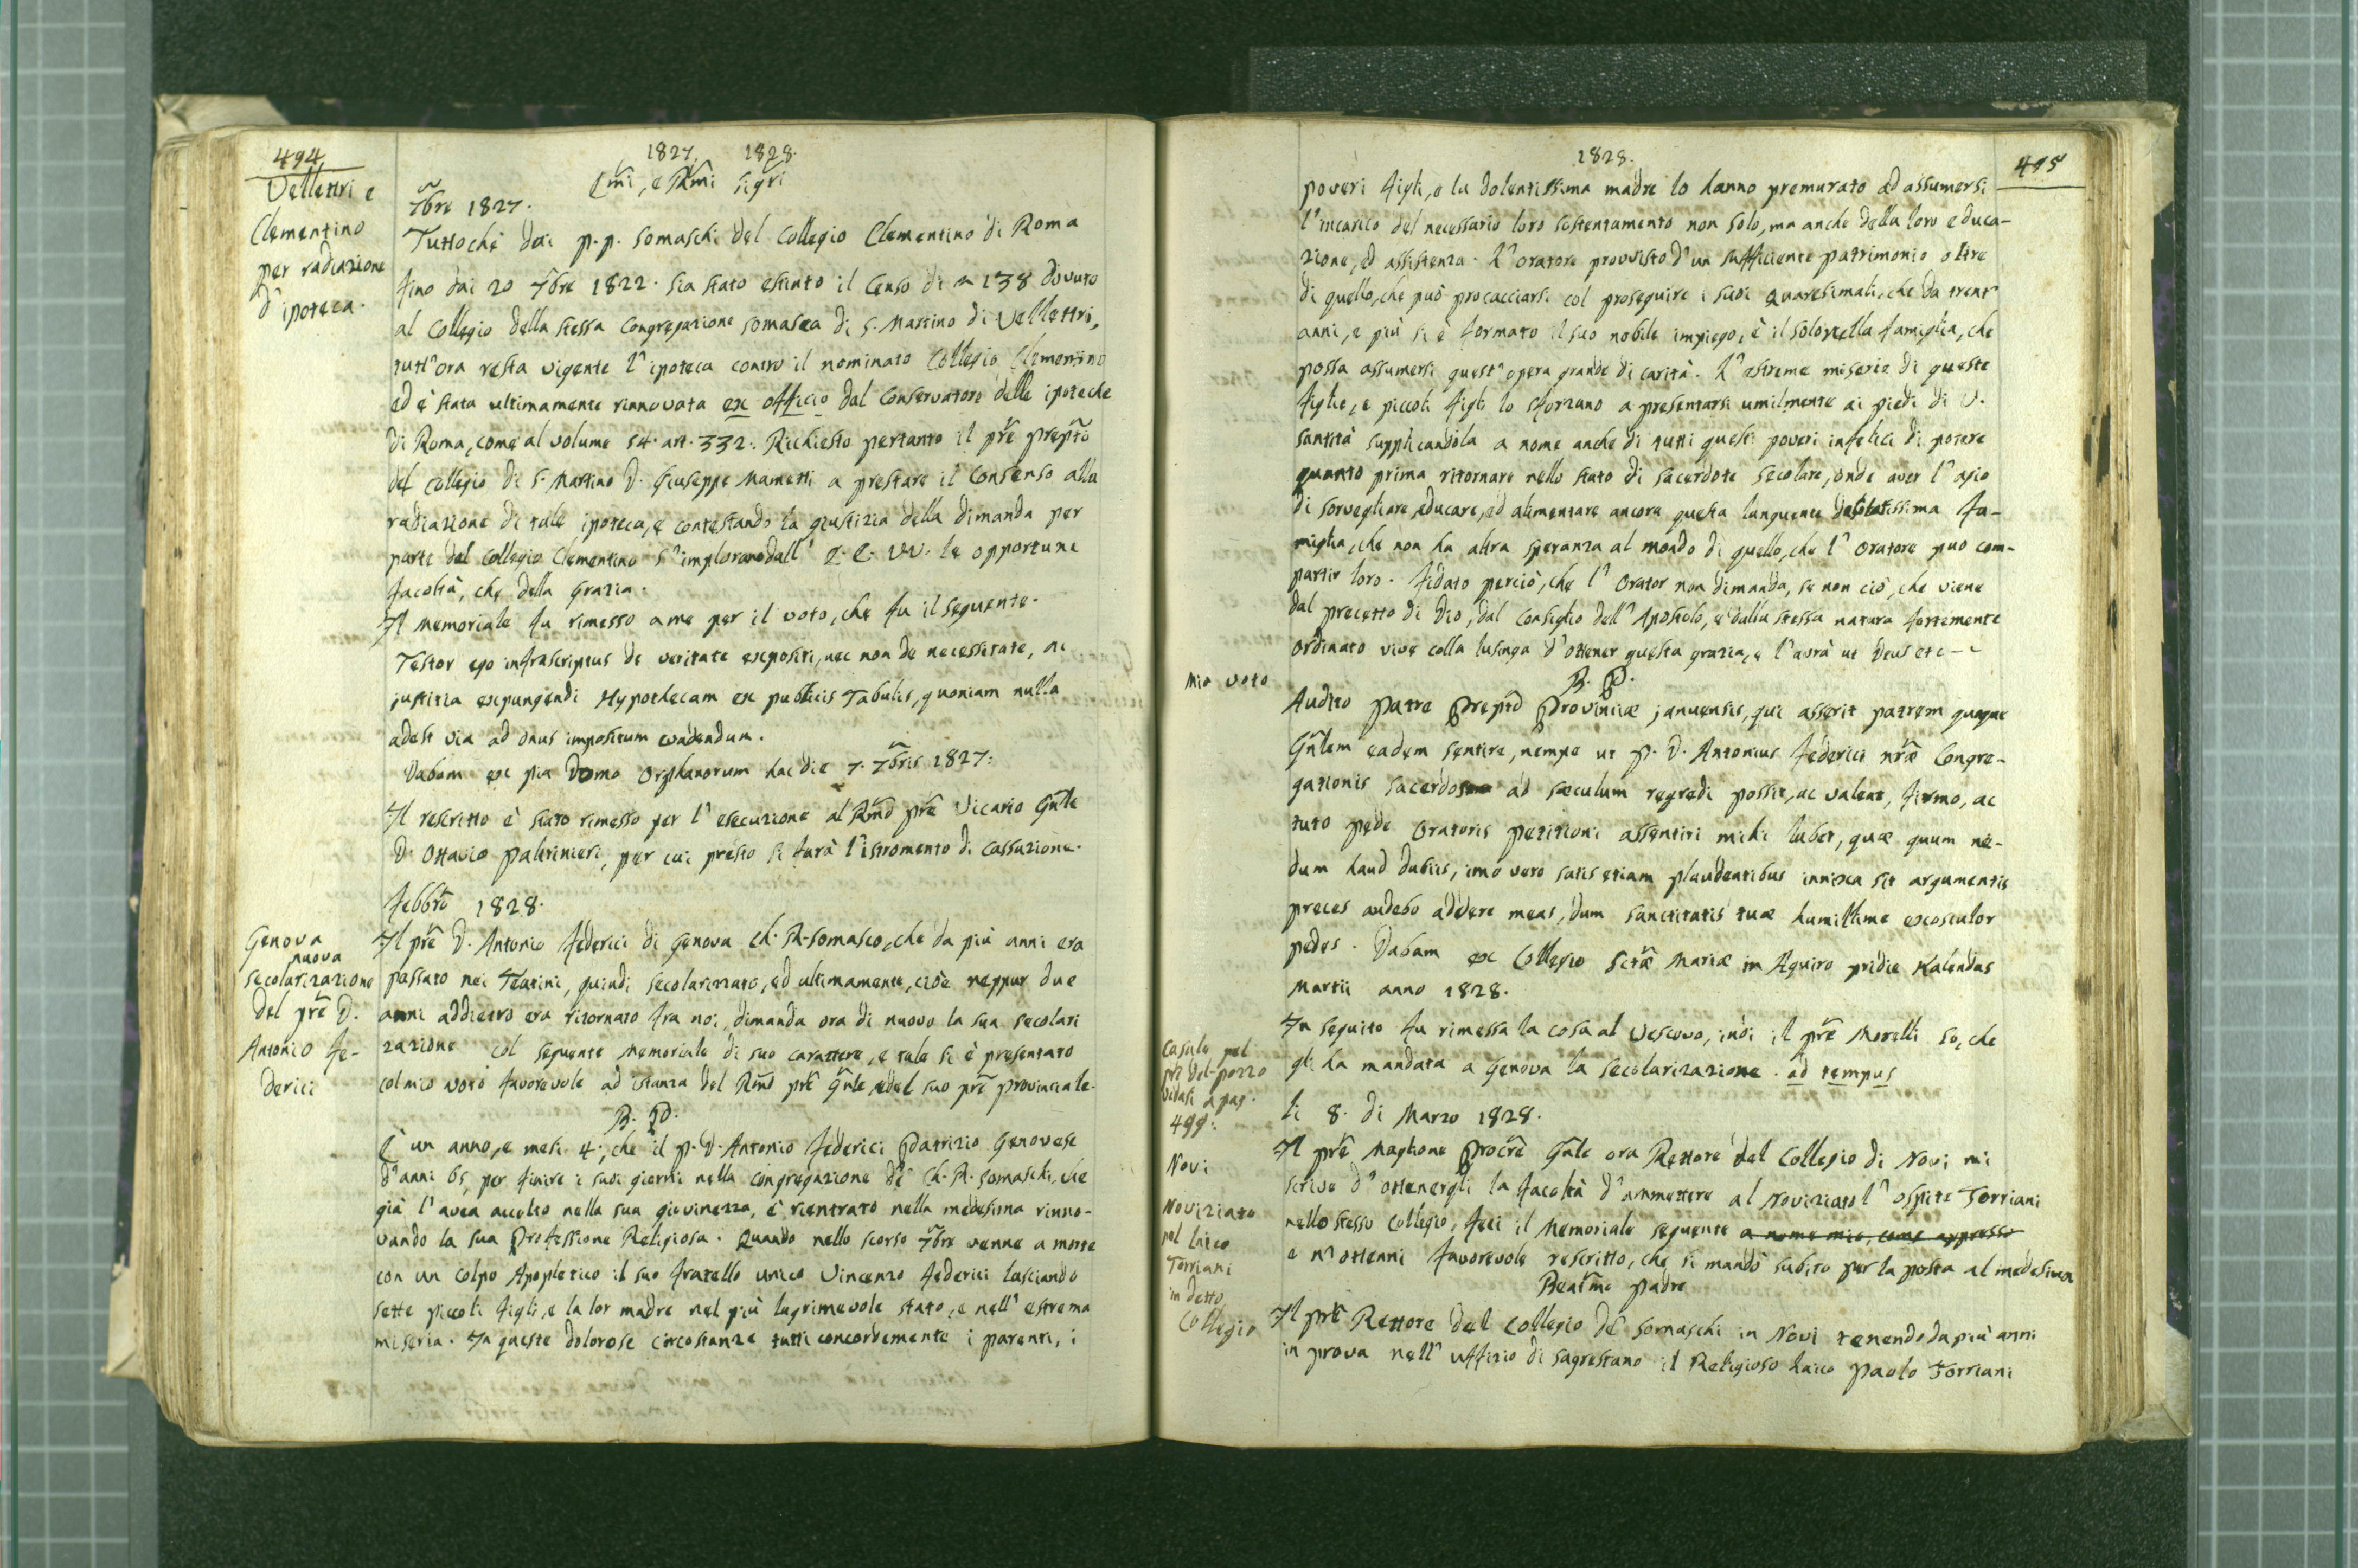 494
1827. 1828.
Vellettri e
Clementino
per radiazione
d'ipoteca.
Emi, e Rmi Sigri
7bre 1827.
Tuttochè dai p.p. Somaschi del Collegio Clementino di Roma
fino dai 20 7bre 1822. sia stato estinto il Censo di 138 dovuto
al Collegio della stessa Congregazione somasca di S. Martino di Vellettri,
tutt'ora resta vigente l'ipoteca contro il nominato Collegio Clementino
ed è stata ultimamente rinnovata ex officio dal Conservatore delle ipoteche
di Roma, come al volume 54. art. 332. Richiesto pertanto il pre prepto
del Collegio di S. Martino D. Giuseppe Mametti a prestare il Consenso alla
radiazione di tale ipoteca, e contestando la giustizia della dimanda per
parte del Collegio Clementino s'implorano dall' E. E. VV. le opportune
facoltà, che della Grazia.
Il Memoriale fu rimesso a me per il voto, che fu il seguente.
Testor ego infrascriptus de veritate expositi, nec non de necessitate, ac
justitia expungendi Hypothecam ex publicis Tabulis, quoniam nulla
adest via ad onus impositum evadendum.
Dabam ex pia Domo Orphanorum hac die 7. 7bris 1827.
Il rescritto è stato rimesso per l'esecuzione al Rmo pre Vicario Gnle
D. Ottavio Paltrinieri, per cui presto si farà l'istromento di Cassazione.
Febbro 1828.
Genova
nuova
Secolarizazione
del pre D.
Antonio Fe-
derici
Il pre D. Antonio Federici di Genova Ch. R. Somasco, che da più anni era
passato nei Teatini, quindi secolarizzato, ed ultimamente, cioè neppur due
anni addietro era ritornato fra noi, dimanda ora di nuovo la sua secolari
zazione col seguente Memoriale di suo carattere, e tale si è presentato
col mio voto favorevole ad istanza del Rmo pre Gnle, e del suo pre provinciale.
B. P.
È un anno, e mesi 4, che il P. D. Antonio Federici Patrizio Genovese
d'anni 65, per finire i suoi giorni nella Congregazione de' Ch. R. Somaschi, che
già l'avea accolto nella sua giovinezza, è rientrato nella medesima rinno-
vando la sua Professione Religiosa. Quando nello scorso 7bre venne a morte
con un colpo Apopletico il suo fratello unico Vincenzo Federici lasciando
sette piccoli figli, e la lor madre nel più lagrimevole stato, e nell' estrema
miseria. In queste dolorose circostanze tutti concordemente i parenti, i
1828.
495
poveri figli, e la dolentissima madre lo hanno premurato ad assumersi
l'incarico del necessario loro sostentamento non solo, ma anche della loro educa-
zione, ed assistenza. L'oratore provvisto d'un sufficiente patrimonio oltre
di quello, che può procacciarsi col proseguire i suoi Quaresimali, che da trent'
anni, e più si è formato il suo nobile impiego, è il solo nella famiglia, che
possa assumersi quest'opera grande di carità. L'estreme miserie di queste
figlie, e piccoli figli lo sforzano a presentarsi umilmente ai piedi di V.
Santità supplicandola a nome anche di tutti questi poveri infelici di potere
quanto prima ritornare nello stato di Sacerdote Secolare, onde aver l'agio
di sorvegliare, educare, ed alimentare ancora questa languente desolatissima fa-
miglia, che non ha altra speranza al mondo di quello, che l'Oratore può com-
partir loro. Fidato perciò, che l'Orator non dimanda, se non ciò, che viene
dal precetto di Dio, dal Consiglio dell'Apostolo, e dalla stessa natura fortemente
ordinato vive colla lusinga d'ottener questa grazia, e l'avrà ut Deus etc
Mio voto
B. P.
Audito Patre Prepto Provinciæ januensis, qui asserit patrem quoque
Gnlem eadem sentire, nempe ut P. D. Antonius Federici nræ Congre-
gationis sacerdos ad sæculum regredi possit, ac valeat, firmo, ac
tuto pede Oratoris petitioni assentiri mihi lubet, quæ quum ne-
dum haud dubiis, imo vero satis etiam plaudentibus innixa sit argumentis
preces audebo addere meas, dum sanctitatis tuæ humillime exosculor
pedes. Dabam ex Collegio Sctæ Mariæ in Aquiro pridie Kalendas
Martii anno 1828.
In seguito fu rimessa la cosa al Vescovo, indi il pre Morelli so, che
gli ha mandata a Genova la secolarizazione. ad tempus
Casale pel
pre del-pozzo
vedasi a pag.
499.
li 8. di Marzo 1828.
Novi
Noviziato
pel laico
Torriani
in detto
Collegio
Il pre Maglione Procre Gnle ora Rettore del Collegio di Novi mi
scrive d'ottenergli la facoltà d'ammettere al Noviziato l'ospite Torriani
nello stesso Collegio, feci il Memoriale seguente a nome mio, come appresso
e n'ottenni favorevole rescritto, che si mandò subito per la posta al medesimo
Beatmo Padre
Il pre Rettore del Collegio de' Somaschi in Novi tenendo da più anni
in prova nell'uffizio di sagrestano il Religioso laico Paolo Torriani